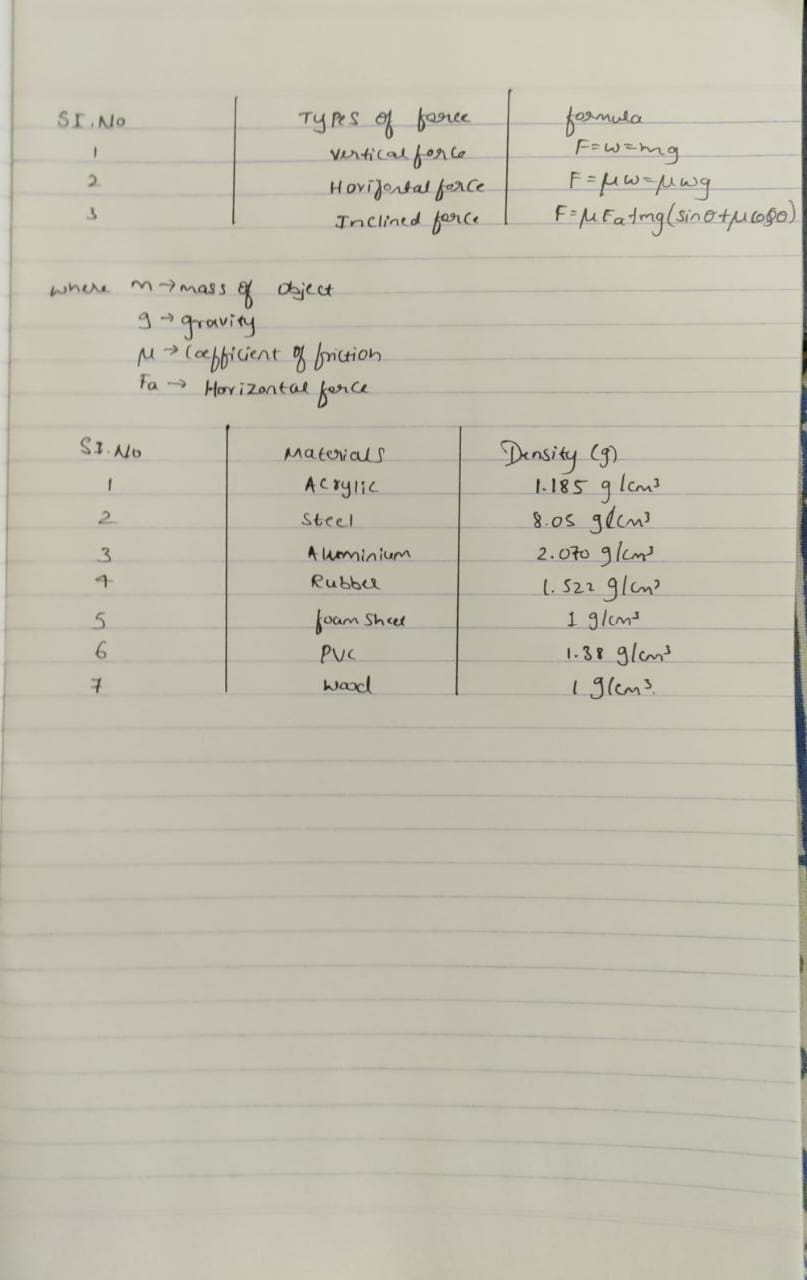 SI.No Types of force formula
1 Vertical force F=w=mg
2 Horizontal force F=μw=μwg
3 Inclined force F=μFa+mg(sinθ+μcosθ)
where m→mass of object
g→gravity
μ→Coefficient of friction
Fa→ Horizontal force
SI.No Materials Density (g)
1 Acrylic 1.185 g/cm³
2 Steel 8.05 g/cm³
3 Aluminium 2.070 g/cm³
4 Rubber 1.522 g/cm³
5 foam Sheet 1 g/cm³
6 PVC 1.38 g/cm³
7 Wood 1 g/cm³.